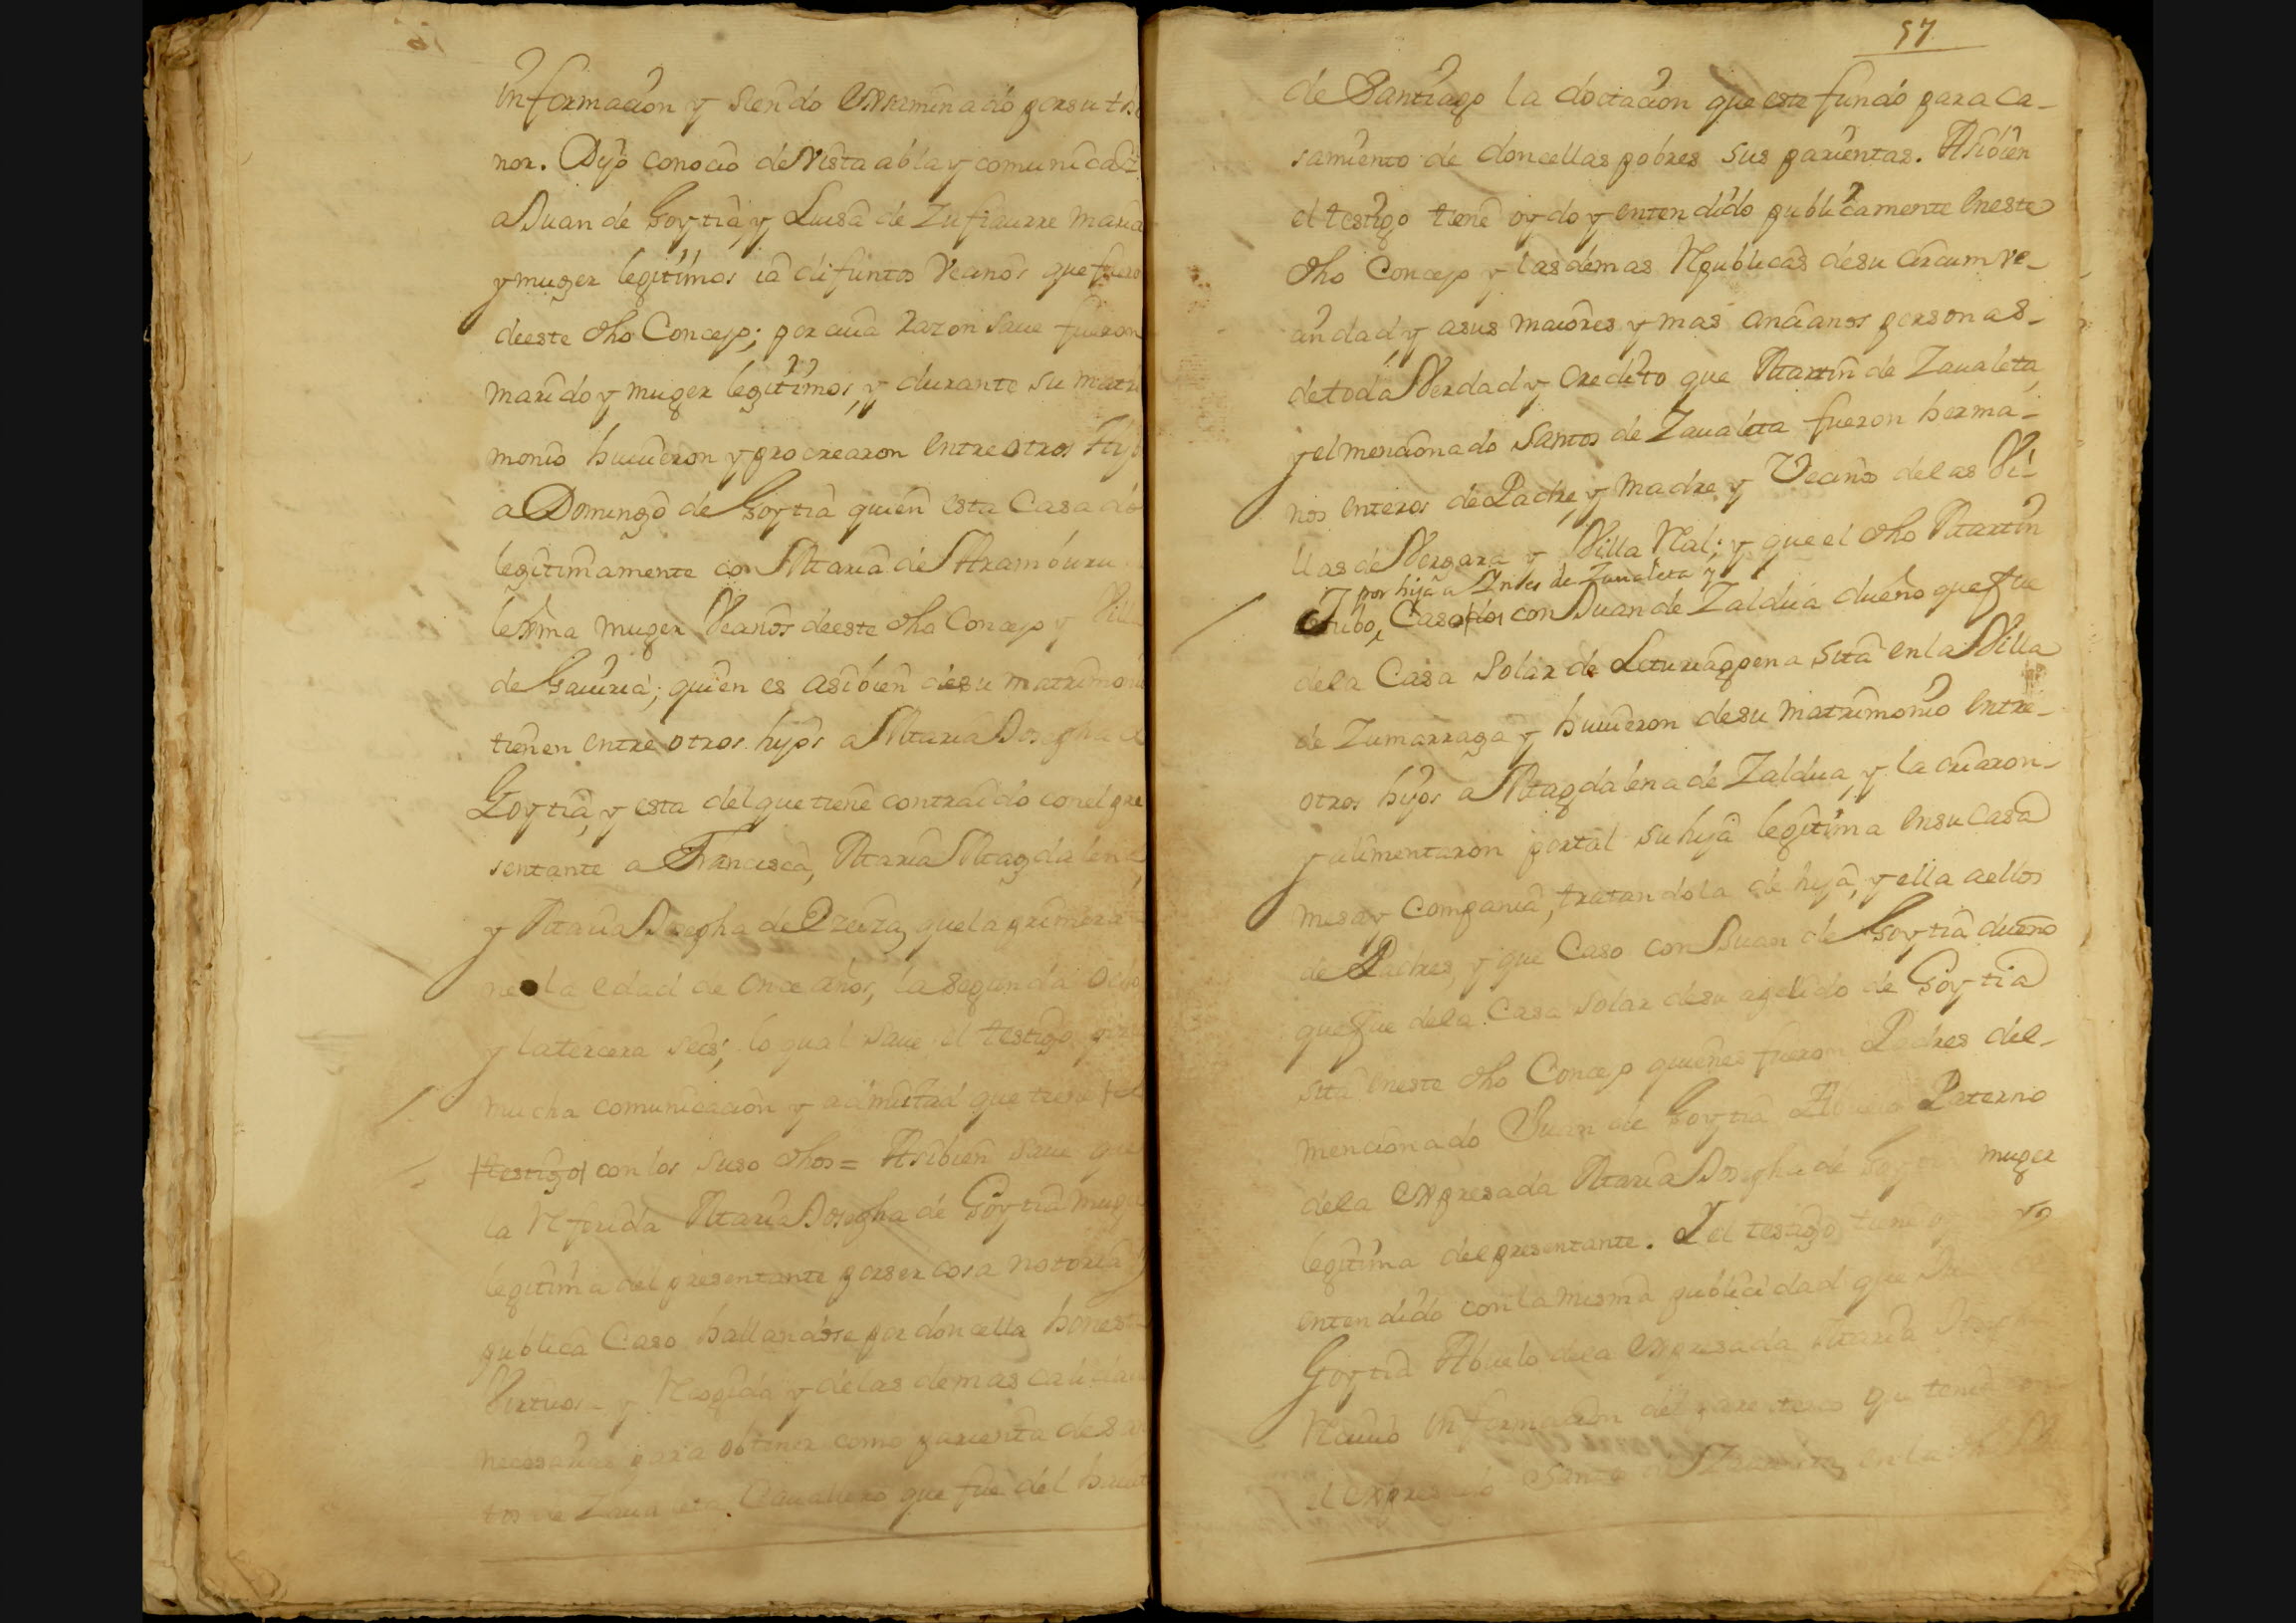 Informacion y siendo exsaminado por su the
nor. Dijo conocio de Vista abla y comunicac.
a Juan de Goytia y Luisa de Zufiaurre marid
y muger legitimos ia difuntos Vecinos que fuero
de este dho Concejo; por cuia razon saue fueron
marido y muger legitimos, y durante su matri
monio huuieron y procrearon entre otros hijo
a Domingo de Goytia quien esta Casado
legitimamente con Maria de Aramburu
lexma muger Vecinos de este dho Concejo y Villa
de Gauiria; quien es asibien de su matrimoni
tienen entre otros hijos a Maria Josepha de
Goytia, y esta del que tiene contraido con el pre
sentante a Francisca, Maria Magdalena,
y Maria Josepha de que la primera
ne la edad de once años, la segunda ocho
y la tercera seis; lo qual saue el testigo por
mucha comunicacion y amistad que tiene el
testigo con los suso dhos = Asibien saue que
la Referida Maria Josepha de Goytia muge
legitima del presentante por ser cosa notoria y
publica Caso hallandose por doncella honesta
Virtuosa y Recogida y de las demas calidade
necesarias para obtener como parienta de San
tos de Zaualeta Cauallero que fue del hauit
57
de Santiago la dotacion que este fundó para ca-
samiento de doncellas pobres sus parientas. Asibien
el testigo tiene oydo y entendido publicamente en este
dho Concejo y las demas Republicas de su circumve-
cindad y a sus maiores y mas ancianos personas-
de toda Verdad y credito que Martin de Zaualeta,
y el mencionado Santos de Zaualeta fueron herma-
nos enteros de Padre, y madre y Vecinos de las Vi-
llas de Vergara y Villa Real; y que el dho Martin
por hija a Ynes de Zaualeta y
tubo, Casados con Juan de Zaldua dueño que fue
de la Casa Solar de Leturiagoena sita en la Villa
de Zumarraga y huuieron de su matrimonio entre-
otros hijos a Magdalena de Zaldua, y la criaron-
y alimentaron por tal su hija legitima en su Casa
mesa y compania, tratandola de hija, y ella a ellos
de Padres, y que Caso con Juan de Goytia dueño
que fue de la Casa solar de su apellido de Goytia
sita en este dho Concejo quienes fueron Padres del-
mencionado Juan de Goytia Abuelo Paterno
de la expresada Maria Josepha de Goytia muger
legitima del presentante. Y el testigo tiene oydo y
entendido con la misma publicidad que Juan
Goytia Abuelo de la expresada Maria Josepha
Reciuio Informacion del parentesco que tenia con
el expresado Santos de Zaualeta en la dha